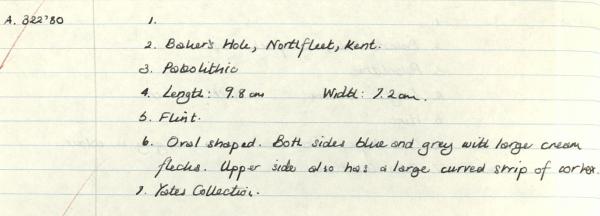 A. 322'80 1.
2. Baker's Hole, Northfleet, Kent.
3. Palaeolithic
4. Length: 9.8 cm Width: 7.2 cm.
5. Flint.
6. Oval shaped. Both sides blue and grey with large cream
flecks. Upper side also has a large curved strip of cortex.
7. Yates Collection.